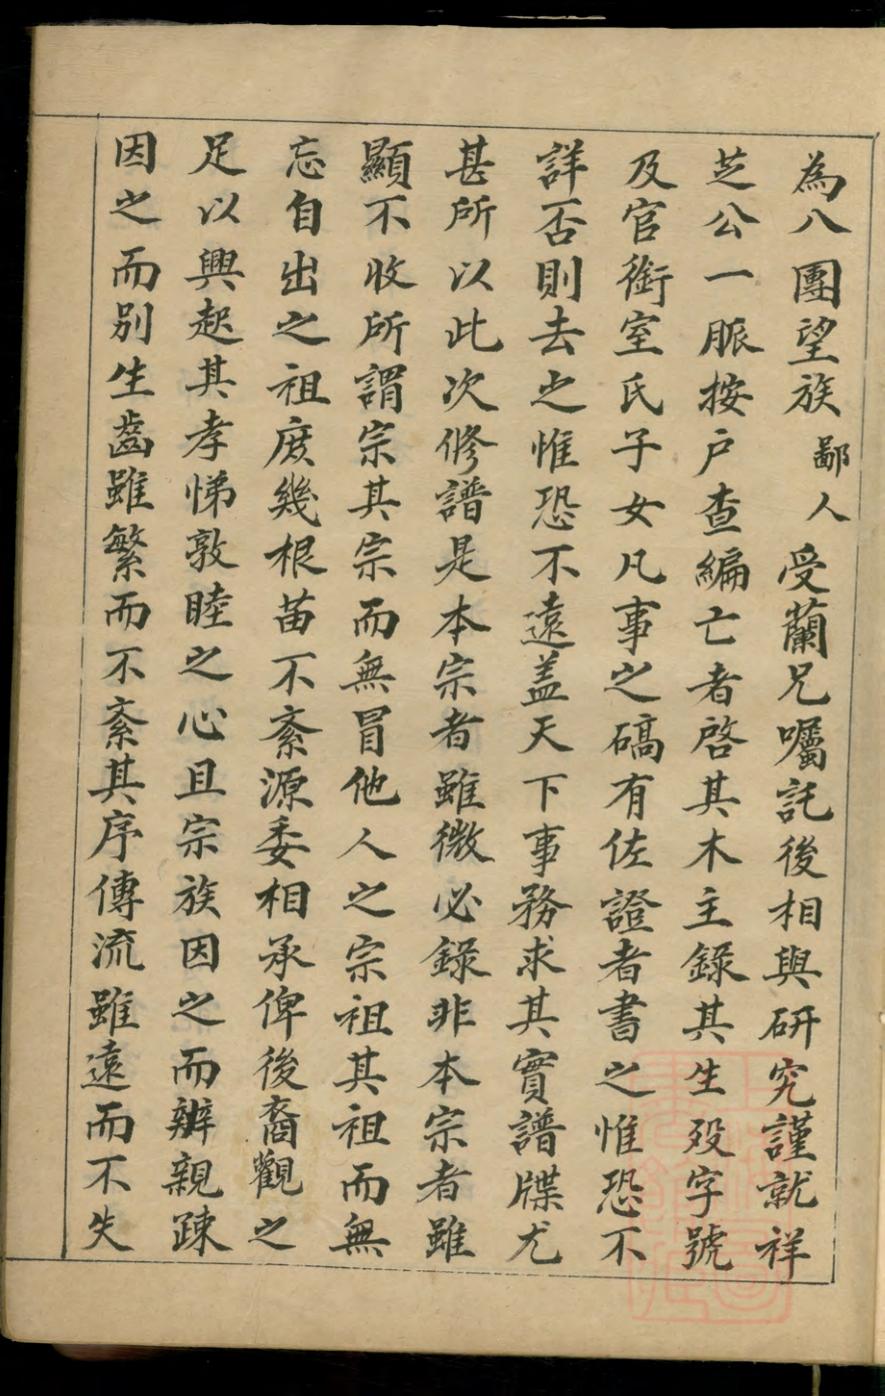 為八團望族鄙人受蘭兄囑託後相與研究謹就祥
芝公一脈按戶查編亡者啓其木主錄其生殁字號
及官銜室氏子女凡事之碻有佐證者書之惟恐不
詳否則去之惟恐不遠盖天下事務求其實譜牒尤
甚所以此次修譜是本宗者雖微必錄非本宗者雖
顯不收所謂宗其宗而無冒他人之宗祖其祖而無
忘自出之祖庶幾根苗不紊源委相承俾後裔觀之
足以興起其孝悌敦睦之心且宗族因之而辨親踈
因之而别生齒雖繁而不紊其序傳流雖遠而不失